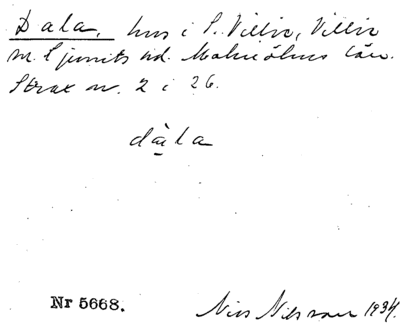 Dala, hus i S. Villie, Villie
sn. Ljunits hd. Malmöhus län.
Strax nv. 2 i 26.
dàla
Nr 5668.
Nils Nilsson 1934.